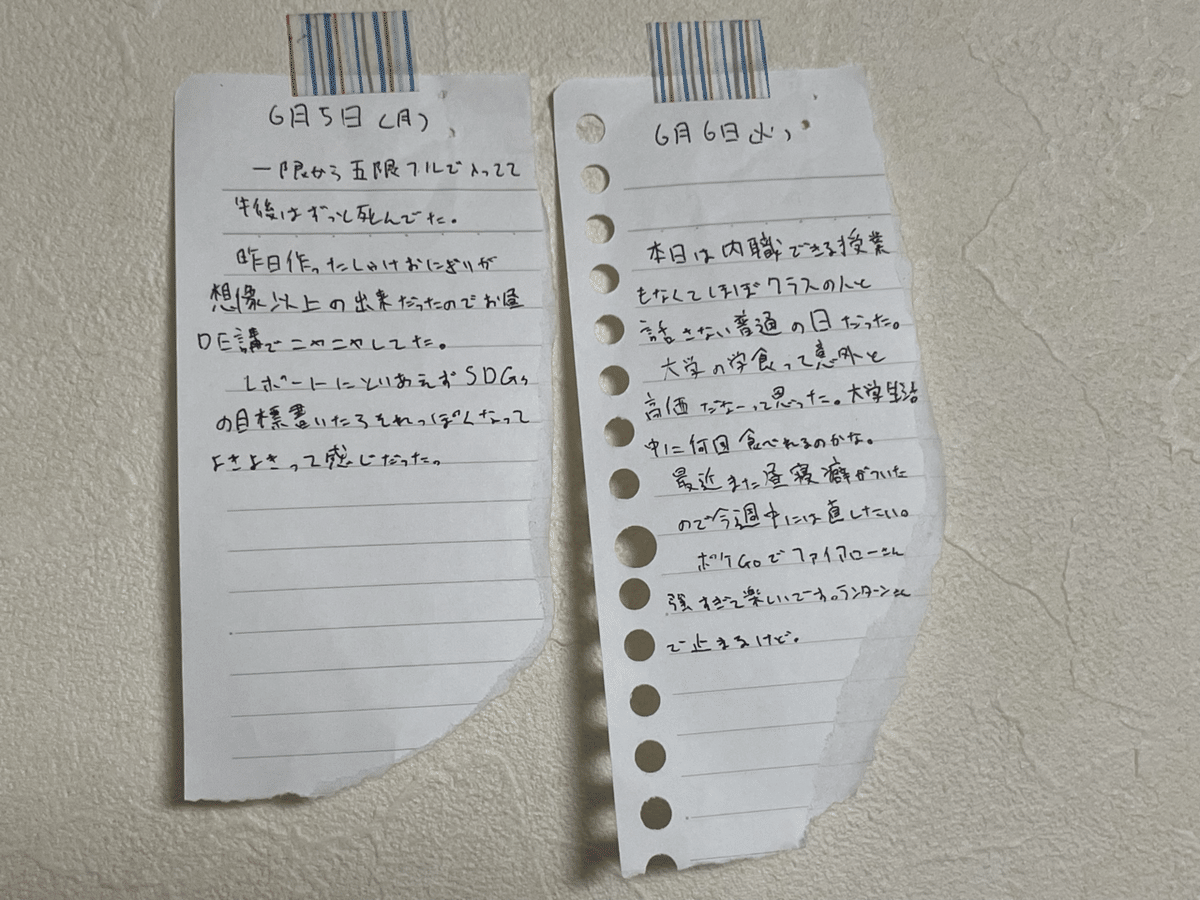 6月5日(月)
一限から五限フルで入ってて
午後はずっと死んでた。
昨日作ったしゃけおにぎりが
想像以上の出来だったのでお昼
DE講でニヤニヤしてた。
レポートにとりあえずSDGs
の目標書いたらそれっぽくなって
よきよきって感じだった。
6月6日(火)
本日は内職できる授業
もなくてほぼクラスの人と
話さない普通の日だった。
大学の学食って意外と
高価だなーって思った。大学生活
中に何回食べれるのかな。
最近また昼寝癖がついた
ので今週中には直したい。
ポケGOでファイアローさん
強すぎて楽しいです。ランターンさん
で止まるけど。